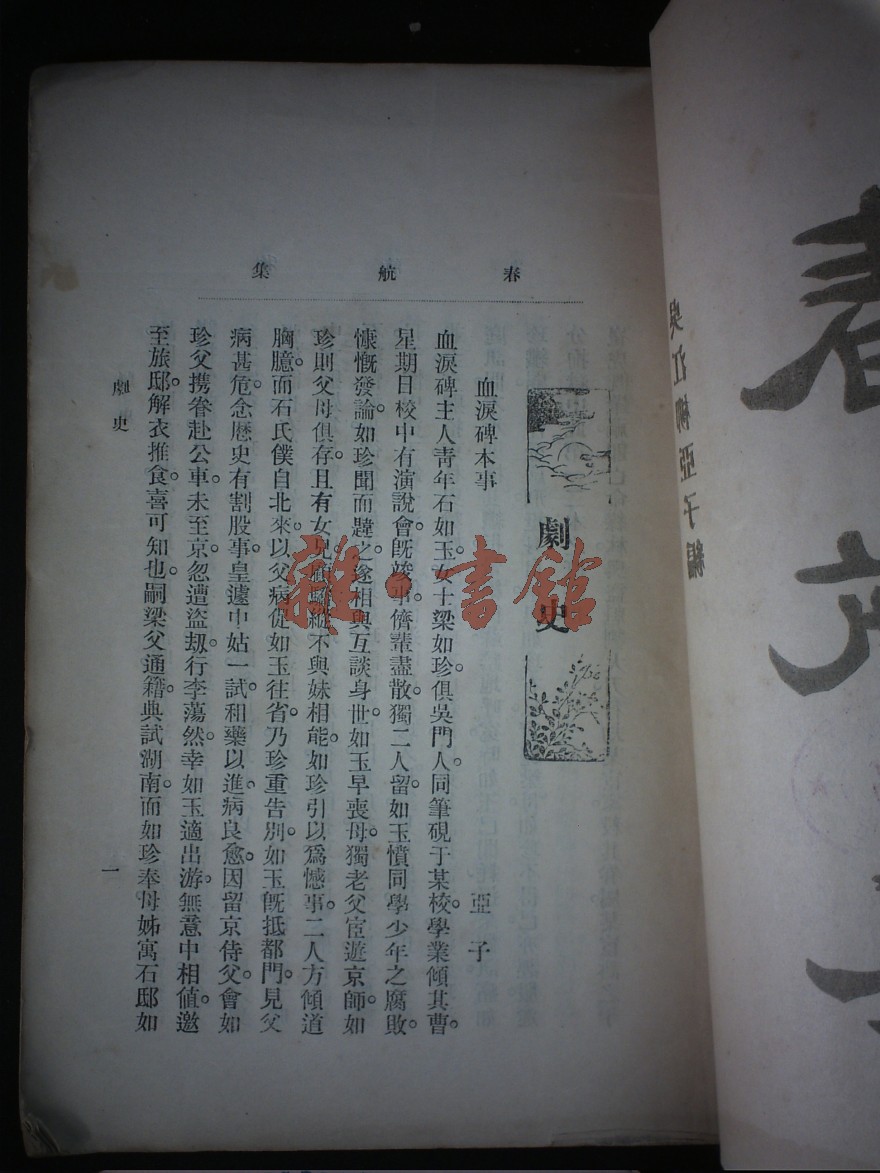 春航集
劇史
血淚碑本事
亞子
血淚碑主人靑年石如玉。女士梁如珍。俱吳門人。同筆硯于某校。學業傾其曹。
星期日校中有演說會。旣竣事。儕輩盡散。獨二人留。如玉憤同學少年之腐敗。
慷慨發論。如珍聞而韙之。遂相與互談身世。如玉早喪母。獨老父宦遊京師。如
珍則父母俱存。且有女兄。顧驕縱不與妹相能。如珍引以爲憾事。二人方傾道
胸臆。而石氏僕自北來。以父病促如玉往省。乃珍重告別。如玉旣抵都門。見父
病甚危。念歷史有割股事。皇遽中姑一試。和藥以進。病良愈。因留京侍父。會如
珍父携眷赴公車。未至京。忽遭盜劫。行李蕩然。幸如玉適出游。無意中相値。邀
至旅邸。解衣推食。喜可知也。嗣梁父通籍。典試湖南。而如珍奉母姊寓石邸。如
劇史
一
吳江柳亞子編
春
雜·書館